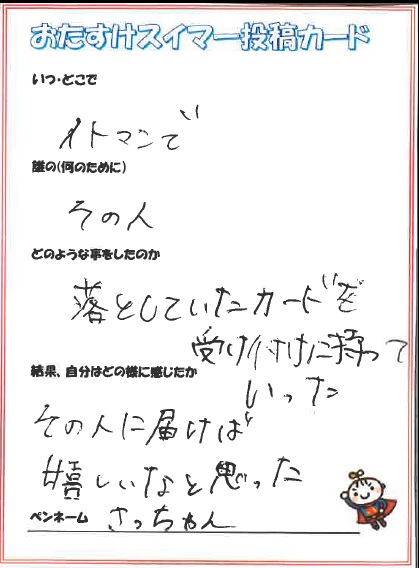 おたすけスイマー投稿カード
いつ・どこで
イトマンで
誰の(何のために)
その人
どのような事をしたのか
落としていたカードを
受け付けに持って
いった
結果、自分はどの様に感じたか
その人に届けば
嬉しいなと思った
ペンネーム さっちゃん